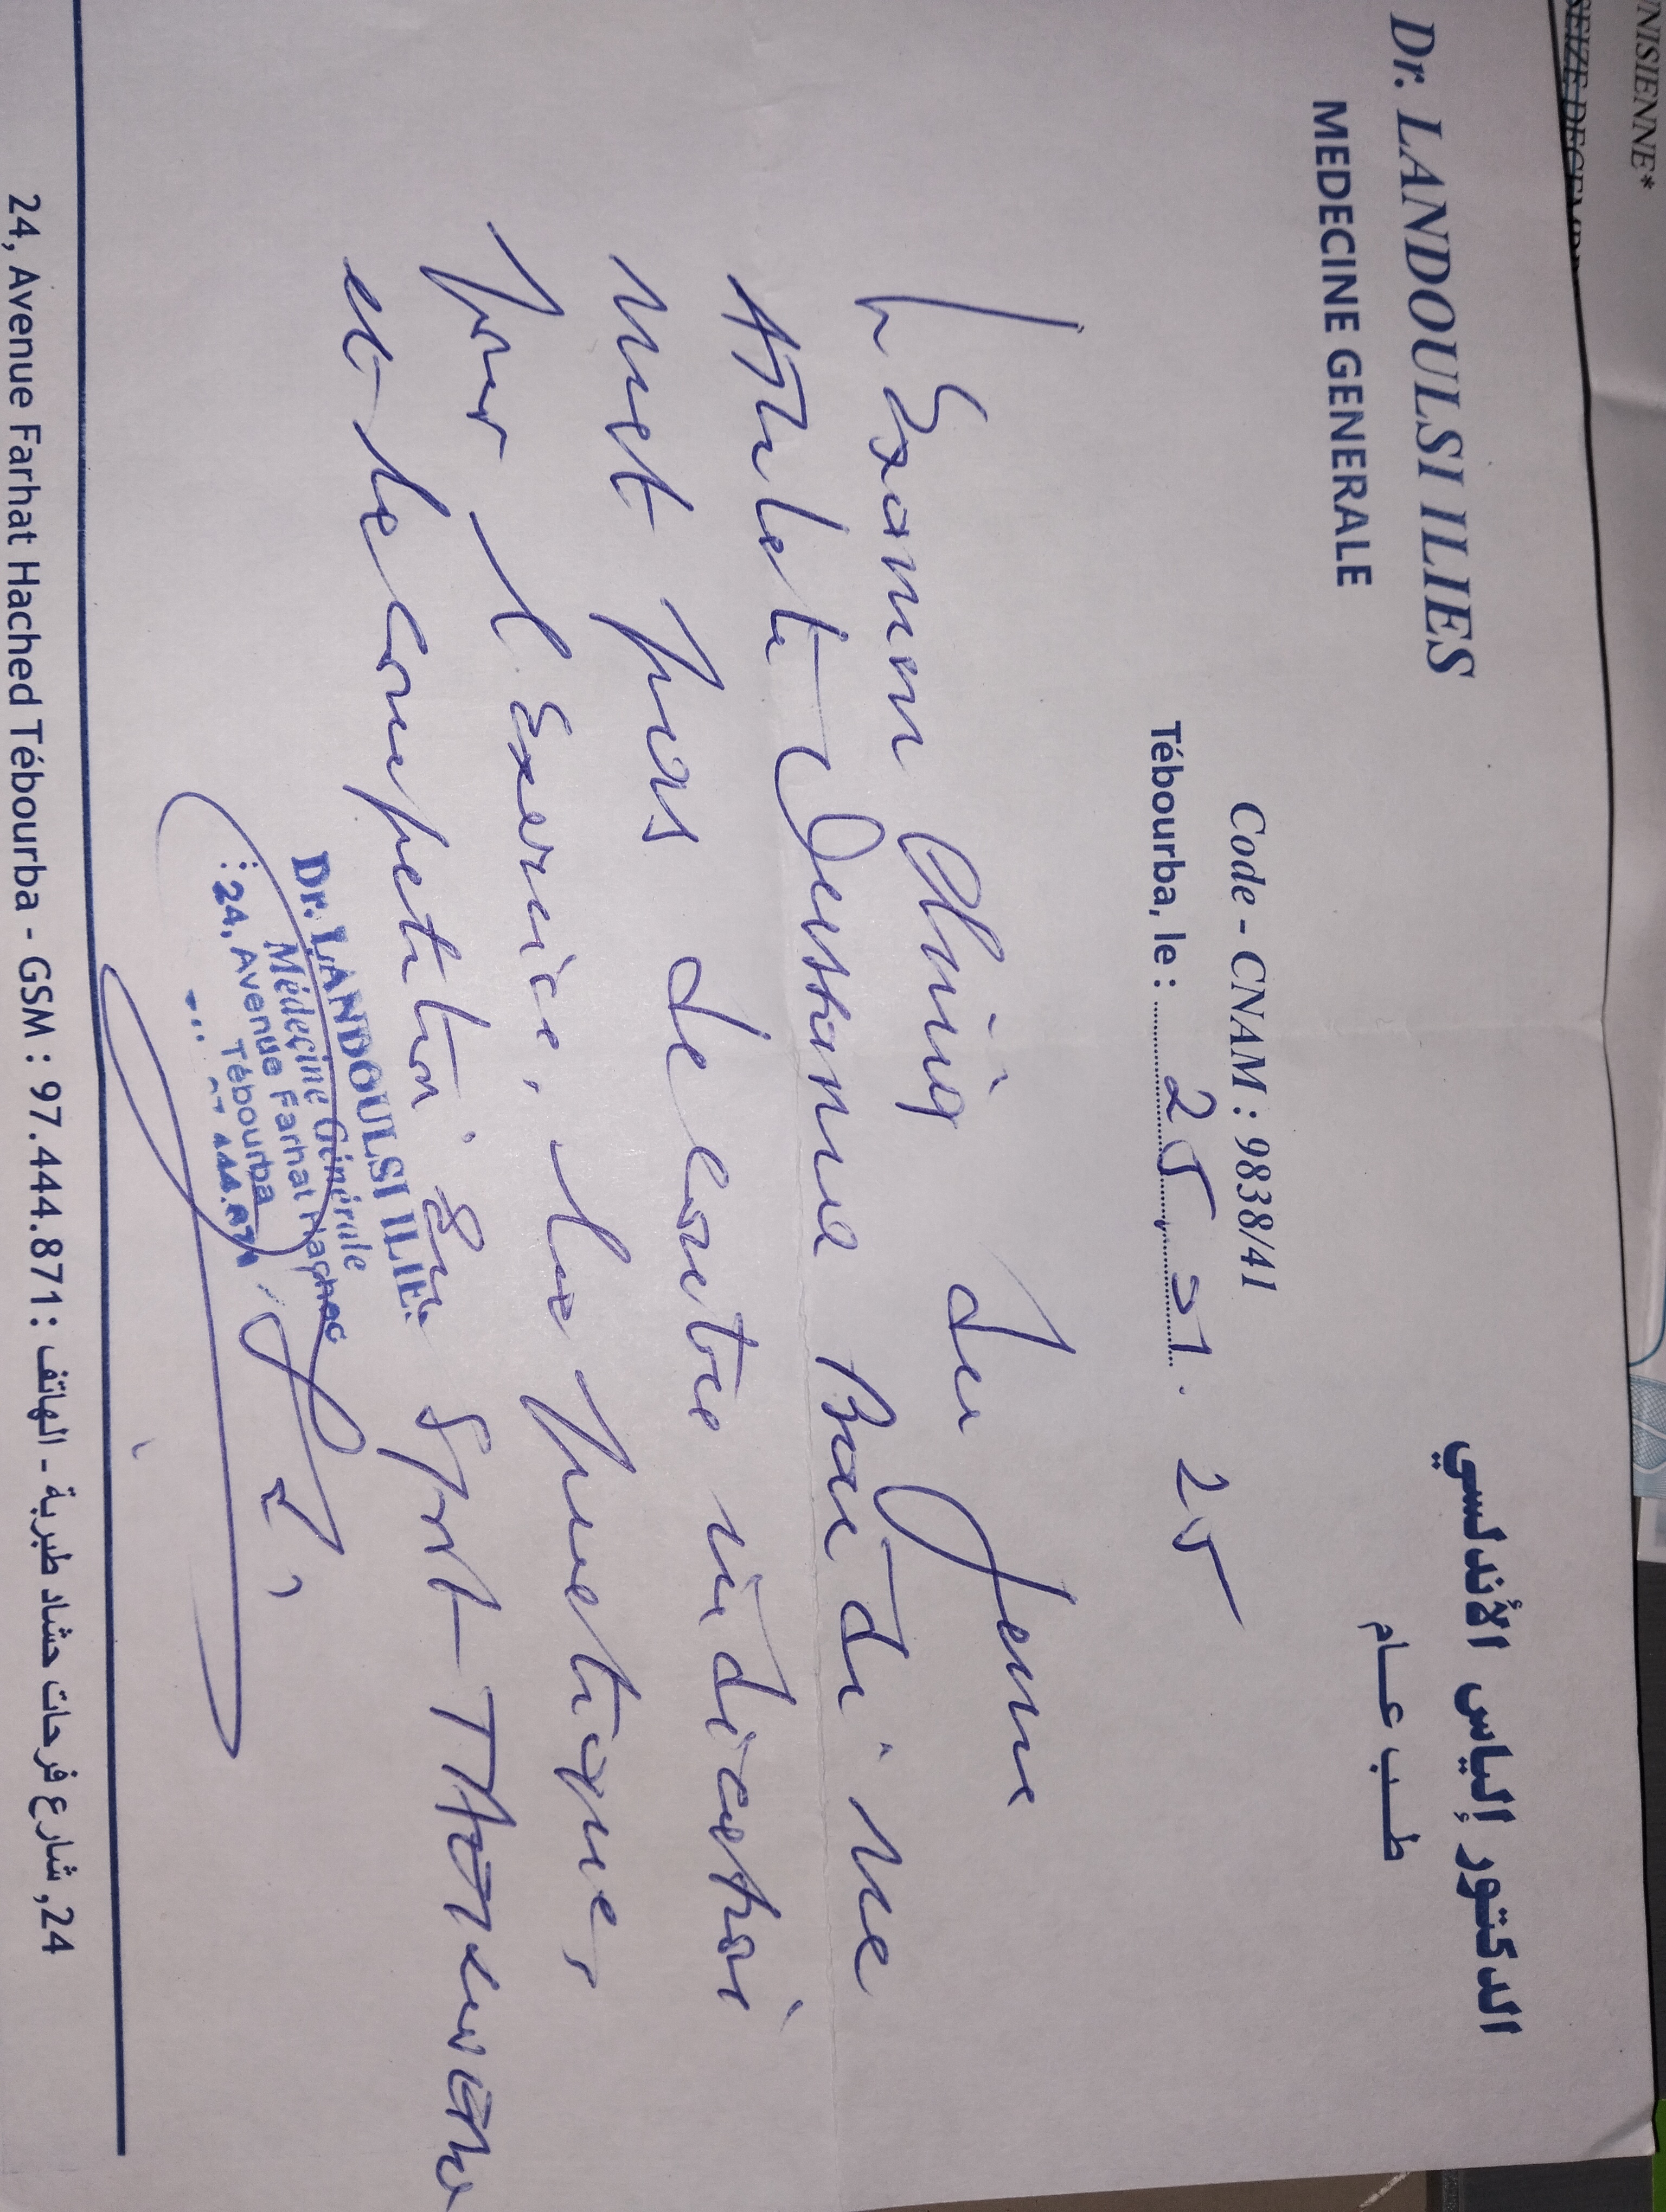 NISIENNE*
SEIZE DECEMB
Dr. LANDOULSI ILIES
MEDECINE GENERALE
الدكتور إلياس الأندلسي
طب عام
Code - CNAM : 9838/41
Tébourba, le : 25 01. 25
L'Examen Cliniq du Jeune
Athlète Oussama Bouaidi. ne
met pas de contre indicatio
pour l'Exercice, la pratique,
et la competition En Sport
Dr. LANDOULSI ILIES
Médecine Générale
: 24, Avenue Farhat Hached
Tébourba
24, Avenue Farhat Hached Tébourba - GSM : 97.444.871 : الهاتف - 24, شارع فرحات حشاد طبربة